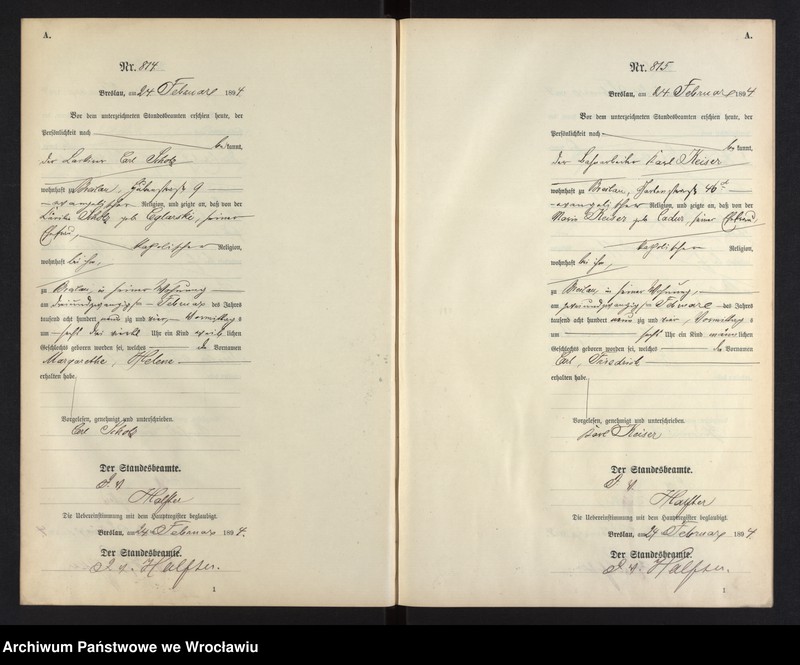 A.
Nr. 814
Breslau, am 24 Februar 1894
Vor dem unterzeichneten Standesbeamten erschien heute, der
Persönlichkeit nach
bekannt,
der Carl Scholz
wohnhaft zu Breslau, 9
evangelischer Religion, und zeigte an, daß von der
Scholz geb. seiner
Ehefrau,
katholischer Religion,
wohnhaft bei ihm,
zu Breslau, in seiner Wohnung
am dreiundzwanzigsten Februar des Jahres
tausend acht hundert neunzig und vier, Vormittags
um sechs drei viertel Uhr ein Kind weiblichen
Geschlechts geboren worden sei, welches die Vornamen
Margarethe, Helene
erhalten habe.
Vorgelesen, genehmigt und unterschrieben.
Carl Scholz
Der Standesbeamte.
J. V.
Halfter
Die Uebereinstimmung mit dem Hauptregister beglaubigt.
Breslau, am 24 Februar 1894.
Der Standesbeamte.
J. V. Halfter.
1
A.
Nr. 815
Breslau, am 24 Februar 1894
Vor dem unterzeichneten Standesbeamten erschien heute, der
Persönlichkeit nach
bekannt,
der Karl Keiser
wohnhaft zu Breslau, 46
evangelischer Religion, und zeigte an, daß von der
Maria Keiser geb. seiner Ehefrau
katholischer Religion,
wohnhaft bei ihm,
zu Breslau, in seiner Wohnung,
am zweiundzwanzigsten Februar des Jahres
tausend acht hundert neunzig und vier, Vormittags
um sechs Uhr ein Kind männlichen
Geschlechts geboren worden sei, welches die Vornamen
Carl, Friedrich
erhalten habe.
Vorgelesen, genehmigt und unterschrieben.
Karl Keiser
Der Standesbeamte.
J. V.
Halfter
Die Uebereinstimmung mit dem Hauptregister beglaubigt.
Breslau, am 24 Februar 1894.
Der Standesbeamte.
J. V. Halfter.
1
Archiwum Państwowe we Wrocławiu